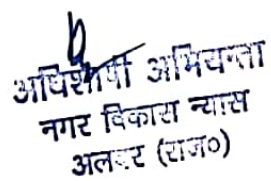 अधिशाषी अभियन्ता
नगर विकास न्यास
अलवर (राज०)